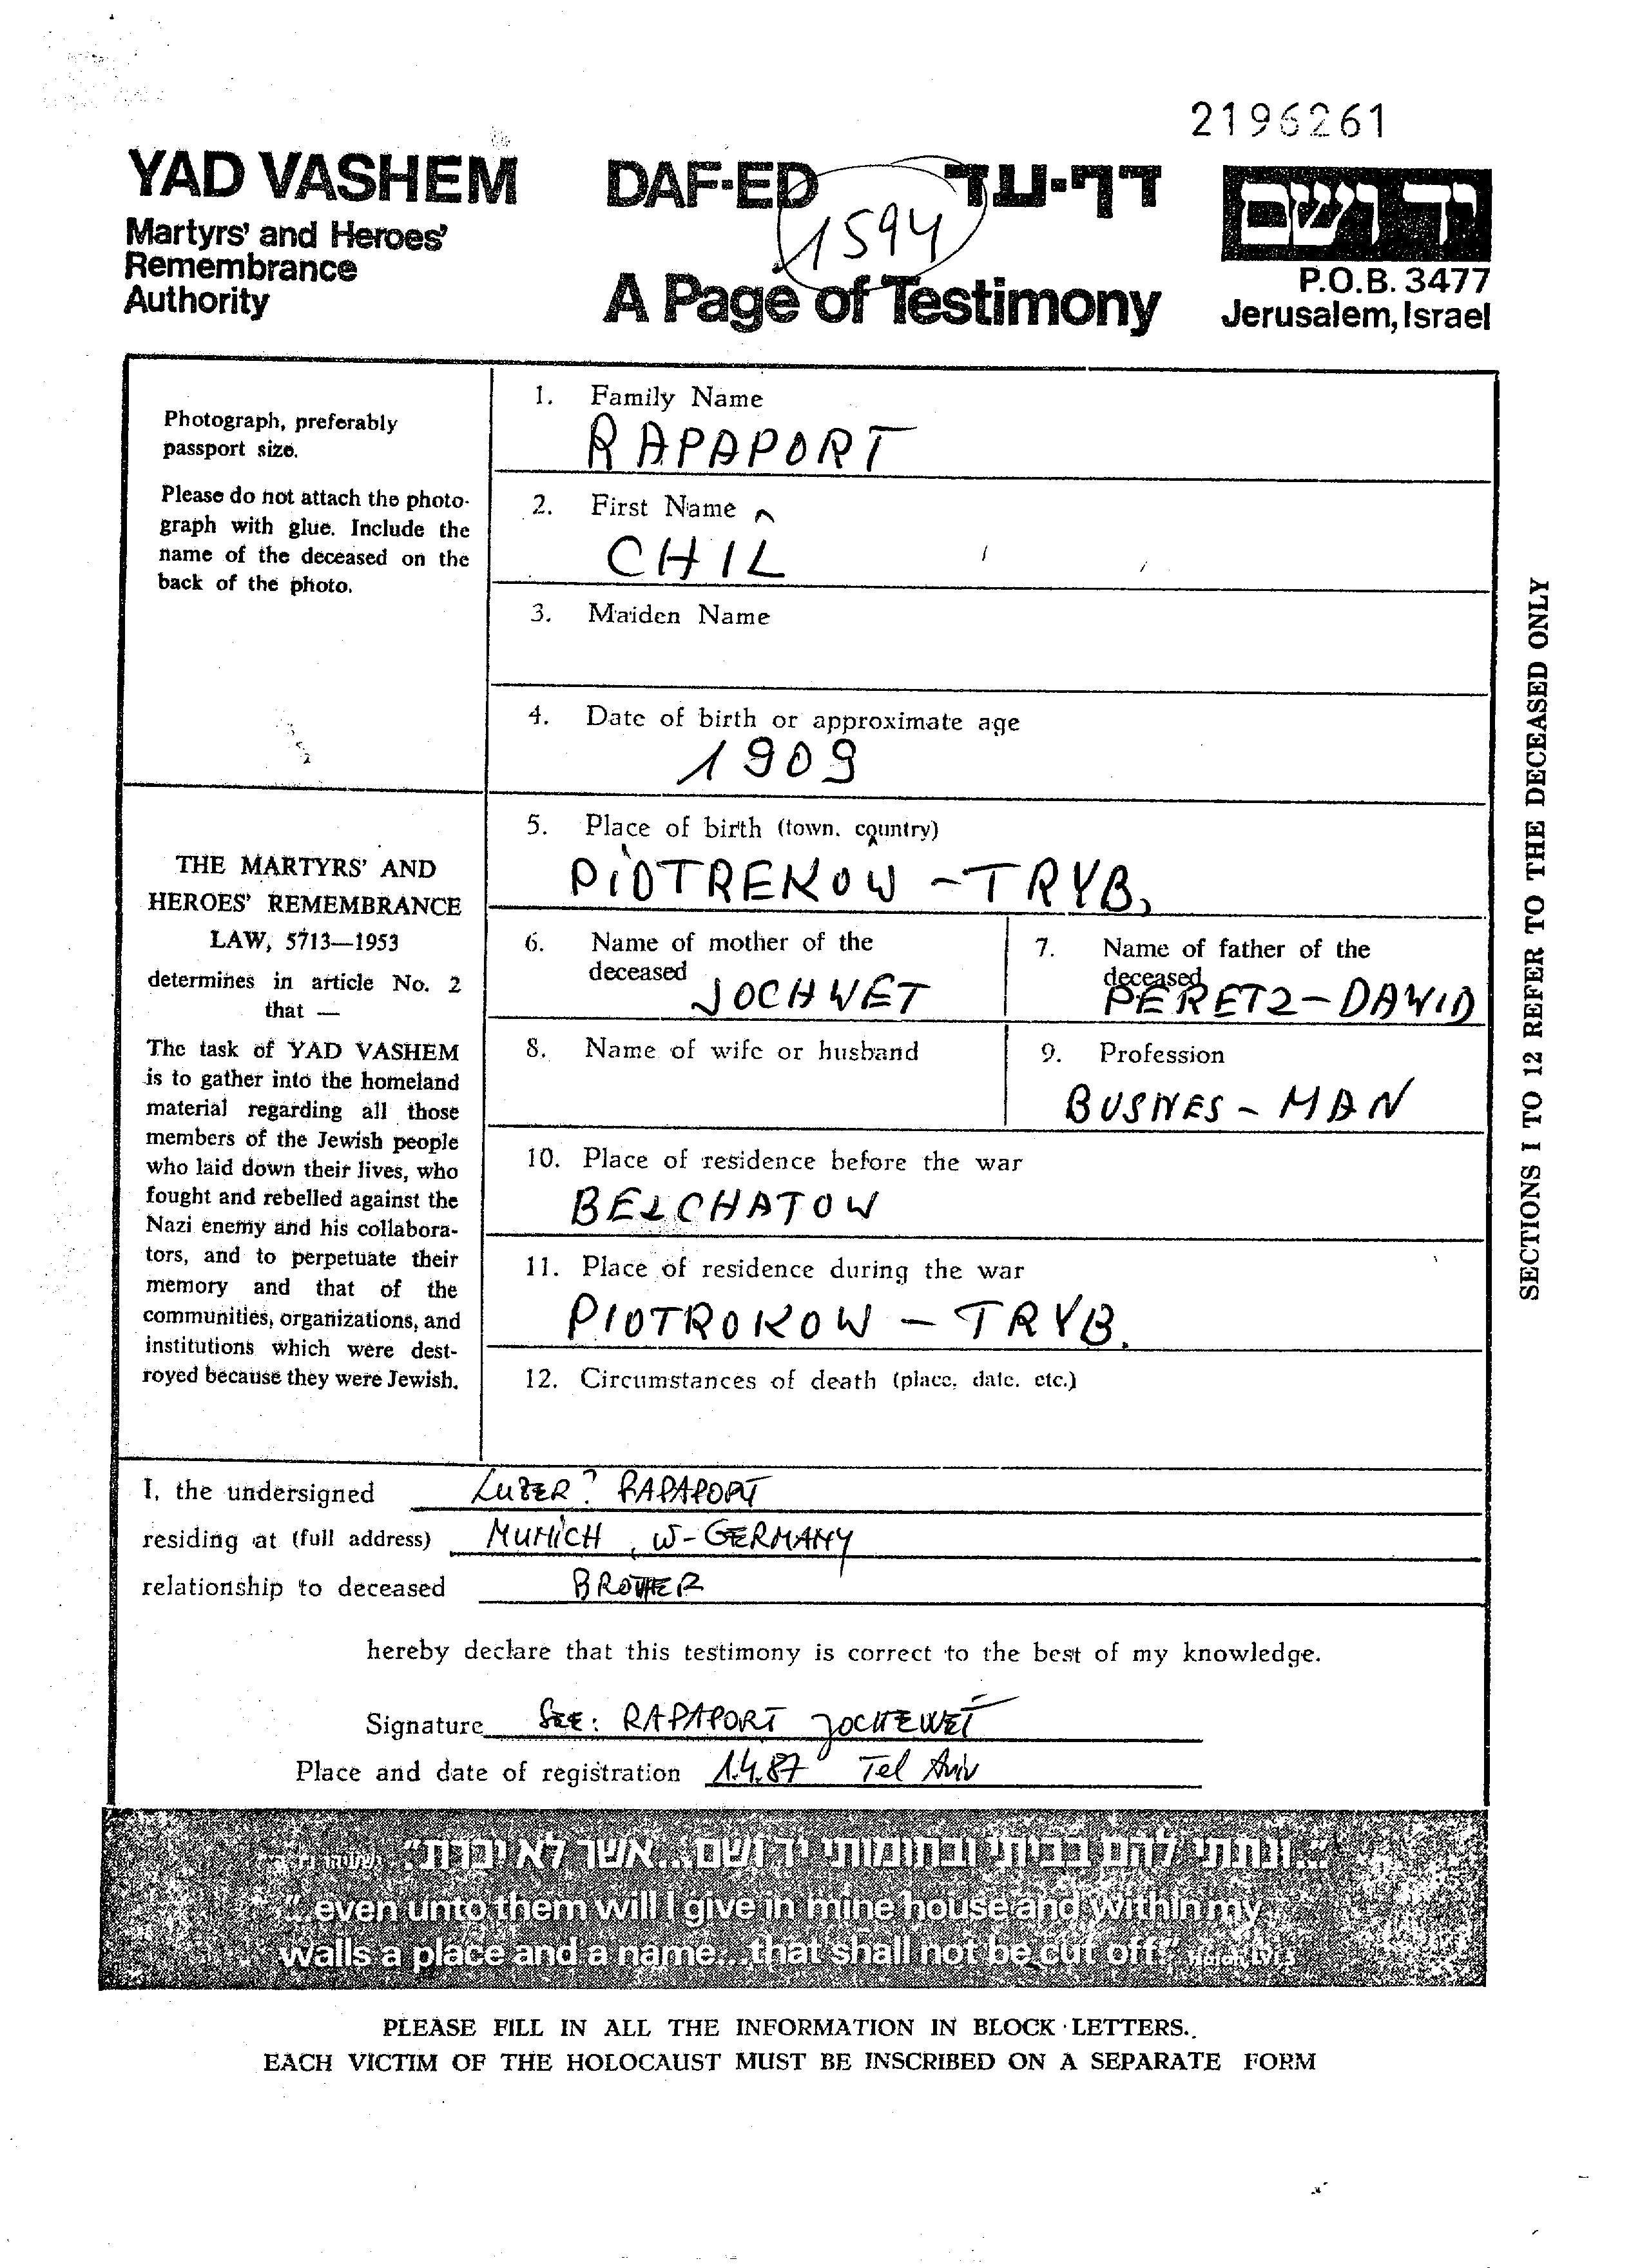 2196261
YAD VASHEM
Martyrs' and Heroes'
Remembrance
Authority
DAF-ED דף-עד
1594
A Page of Testimony
יד ושם
P.O.B. 3477
Jerusalem, Israel
Photograph, preferably
passport size.
Please do not attach the photo-
graph with glue. Include the
name of the deceased on the
back of the photo.
1. Family Name
RAPAPORT
2. First Name
CHIL
3. Maiden Name
4. Date of birth or approximate age
1909
THE MARTYRS' AND
HEROES' REMEMBRANCE
LAW, 5713—1953
determines in article No. 2
that —
The task of YAD VASHEM
is to gather into the homeland
material regarding all those
members of the Jewish people
who laid down their lives, who
fought and rebelled against the
Nazi enemy and his collabora-
tors, and to perpetuate their
memory and that of the
communities, organizations, and
institutions which were dest-
royed because they were Jewish.
5. Place of birth (town, country)
PIOTREKOW - TRYB,
6. Name of mother of the
deceased
JOCHWET
7. Name of father of the
deceased
PERETZ-DAWID
8. Name of wife or husband
9. Profession
BUSNES - MAN
10. Place of residence before the war
BEŁCHATOW
11. Place of residence during the war
PIOTROKOW - TRYB.
12. Circumstances of death (place, date, etc.)
SECTIONS 1 TO 12 REFER TO THE DECEASED ONLY
I, the undersigned LUZER? RAPAPORT
residing at (full address) MUNICH, W-GERMANY
relationship to deceased BROTHER
hereby declare that this testimony is correct to the best of my knowledge.
Signature SEE: RAPAPORT JOCHEWET
Place and date of registration 1.4.87 Tel Aviv
"...ונתתי להם בביתי ובחומותי יד ושם...אשר לא יכרת."
"...even unto them will I give in mine house and within my
walls a place and a name...that shall not be cut off"
PLEASE FILL IN ALL THE INFORMATION IN BLOCK LETTERS.
EACH VICTIM OF THE HOLOCAUST MUST BE INSCRIBED ON A SEPARATE FORM